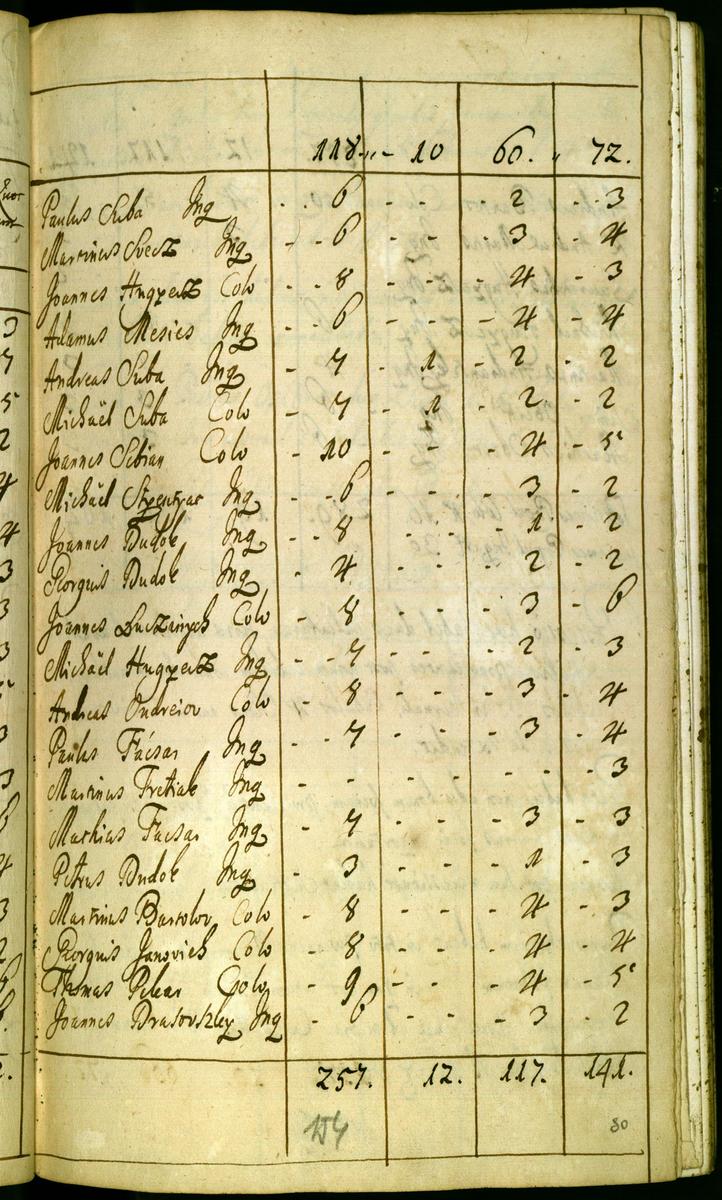 118. „ - 10 60. „ 72.
Paulus Suba Inq - - 6 - - - 2 - - 3
Martinus Svecz Inq - - 6 - - - 3 - 4
Joannes Hugyecz Colo - - 8 - - - 4 - 3
Adamus Mesics Inq - 6 - - - 4 - 4
Andreas Suba Inq - 7 - 1 - 2 - 2
Michaël Suba Colo - 7 - 1 - 2 - 2
Joannes Sebian Colo - 10 - - - 4 - 5
Michaël Inq - - 6 - - - 3 - 2
Joannes Dudok Inq - - 8 - - - 1 - 2
Georgius Dudok Inq - 4 - - - 2 - 2
Joannes Colo - 8 - - - 3 - 6
Michaël Hugyecz Inq - - 7 - - - 2 - 3
Andreas Ondreiov Colo - 8 - - - 3 - 4
Paulus Fácsar Inq - - 7 - - - 3 - 4
Martinus Tretiak Inq - - - - - - - 3
Mathias Facsar Inq - 7 - - - 3 - 3
Petrus Dudok Inq - 3 - - - 1 - 3
Martinus Bartolov Colo - 8 - - - 4 - 3
Georgius Janovich Colo - 8 - - - 4 - 4
Thomas Pekar Colo - 9 - - - 4 - 5
Joannes Inq - 6 - - - 3 - 2
257. 12. 117. 141.
154 80